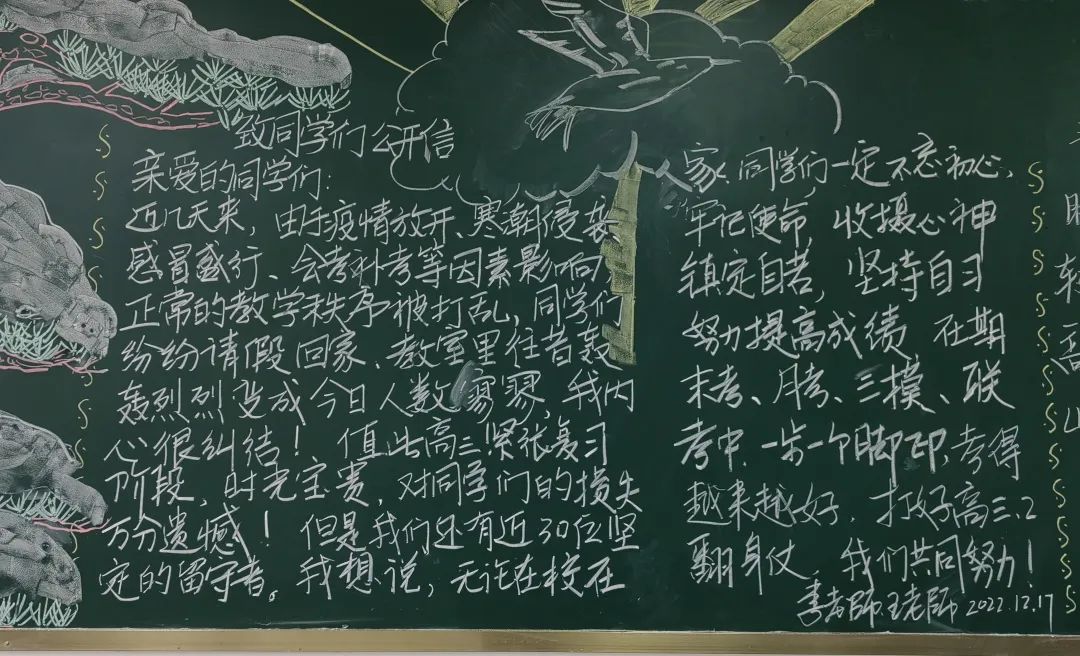 致同学们公开信
亲爱的同学们:
近几天来,由于疫情放开、寒潮侵袭、
感冒盛行、会考补考等因素影响,
正常的教学秩序被打乱,同学们
纷纷请假回家、教室里往昔轰
轰烈烈变成今日人数寥寥,我内
心很纠结! 值此高三紧张复习
阶段,时光宝贵,对同学们的损失
万分遗憾! 但是我们还有近30位坚
定的留守者。我想说,无论在校在
家,同学们一定不忘初心,
牢记使命,收摄心神
镇定自若,坚持自习
努力提高成绩 在期
末考、月考、三模、联
考中,一步一个脚印,考得
越来越好. 打好高三.2
翻身仗,我们共同努力!
李老師王老師 2022.12.17